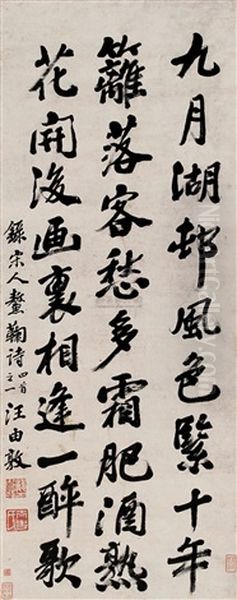 九月湖邨風色緊十年
籬落客愁多霜肥酒熟
花開後画裏相逢一醉歌
錄宋人螯菊诗四首之一汪由敦